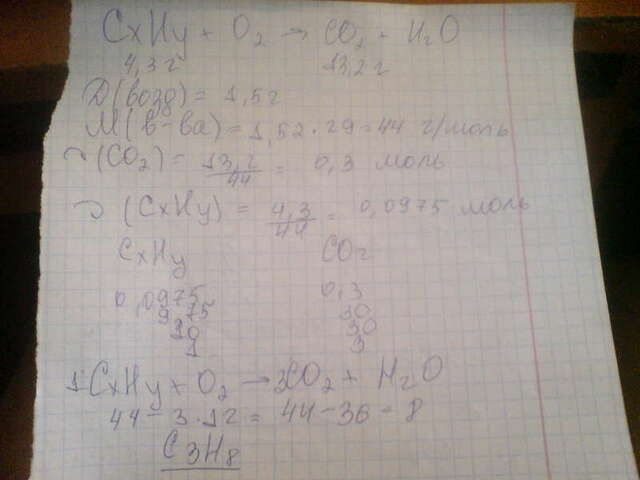 CxHy + O2 → CO2 + H2O
4,3 г 13,2 г
Д(возд) = 1,52
M(в-ва) = 1,52 · 29 = 44 г/моль
ν(CO2) = 13,2/44 = 0,3 моль
ν(CxHy) = 4,3/44 = 0,0975 моль
CxHy CO2
0,0975 0,3
9,75 30
10 30
1 3
1CxHy + O2 → 3CO2 + H2O
44 - 3 · 12 = 44 - 36 = 8
C3H8